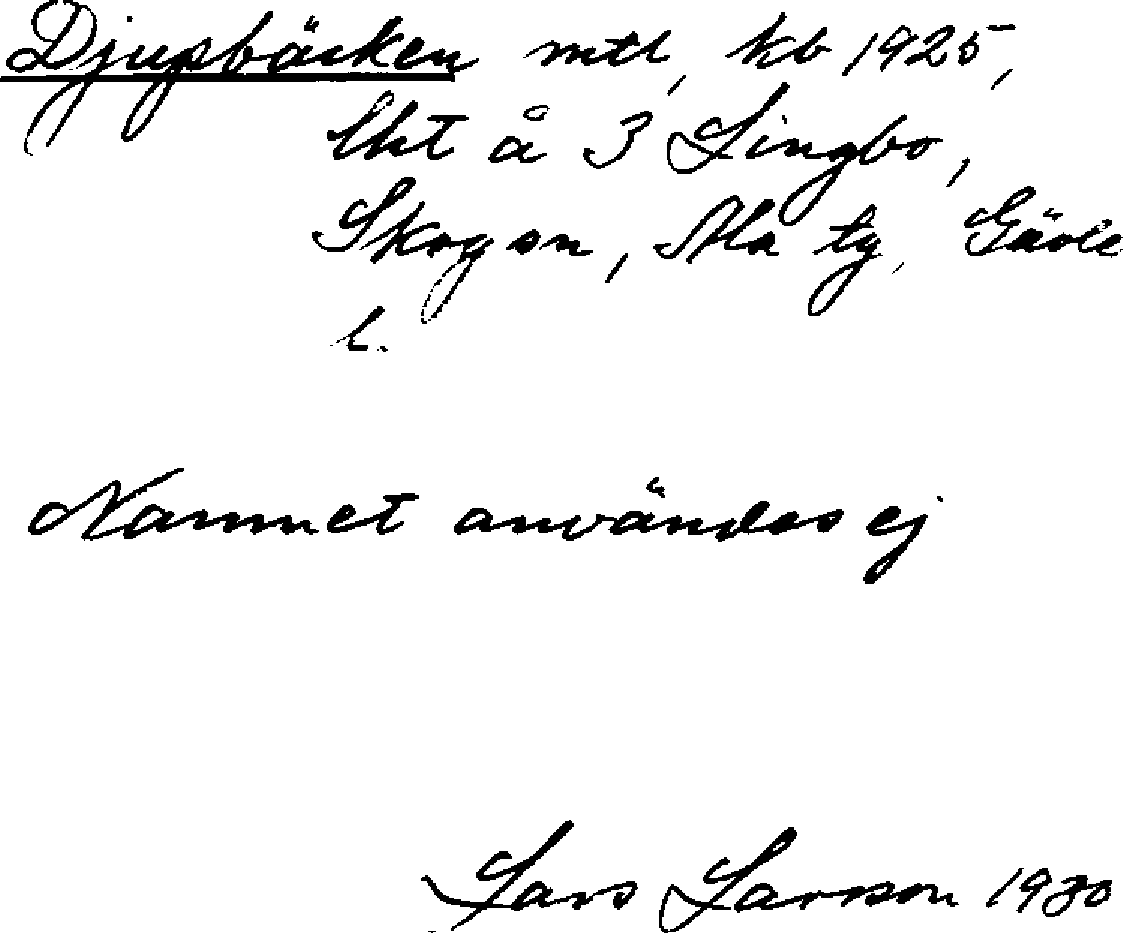 Djupbäcken mtl, kb 1925,
lht å 3 Lingbo,
Skogsn, Ala tg, Gävle
l.
Namnet användes ej
Lars Larsson 1930